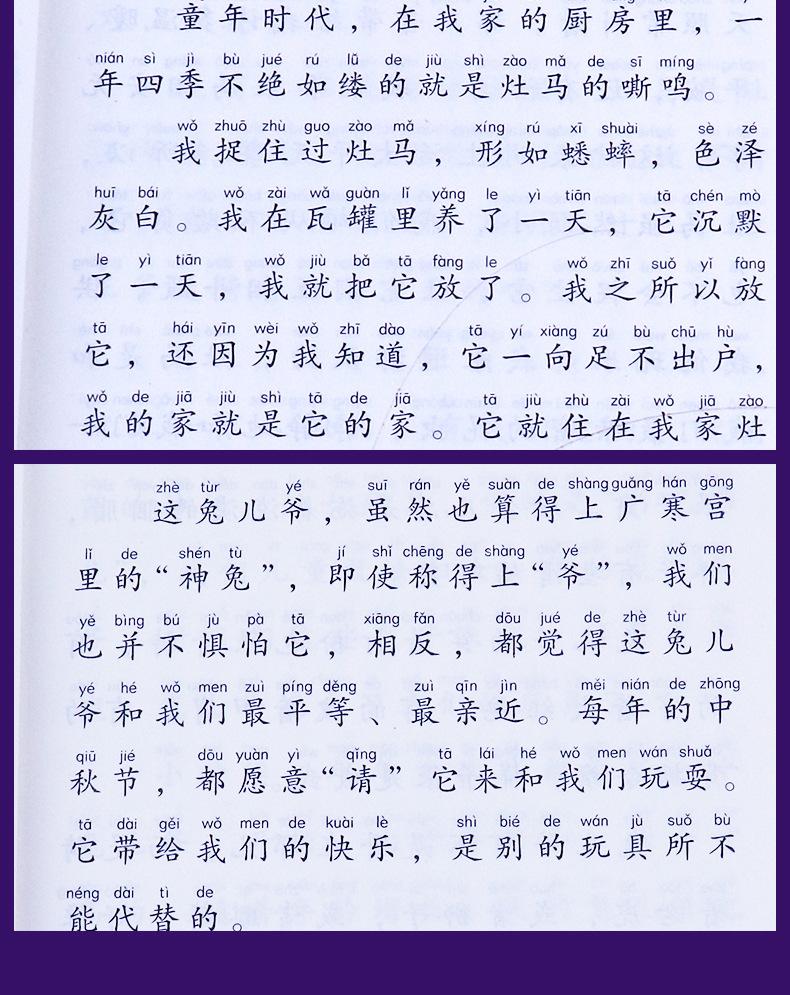 童年时代，在我家的厨房里，一
nián sì jì bù jué rú lǚ de jiù shì zào mǎ de sī míng
年四季不绝如缕的就是灶马的嘶鸣。
wǒ zhuō zhù guo zào mǎ xíng rú xī shuài sè zé
我捉住过灶马，形如蟋蟀，色泽
huī bái wǒ zài wǎ guàn lǐ yǎng le yì tiān tā chén mò
灰白。我在瓦罐里养了一天，它沉默
le yì tiān wǒ jiù bǎ tā fàng le wǒ zhī suǒ yǐ fàng
了一天，我就把它放了。我之所以放
tā hái yīn wèi wǒ zhī dào tā yí xiàng zú bù chū hù
它，还因为我知道，它一向足不出户，
wǒ de jiā jiù shì tā de jiā tā jiù zhù zài wǒ jiā zào
我的家就是它的家。它就住在我家灶
zhè tùr yé suī rán yě suàn de shàng guǎng hán gōng
这兔儿爷，虽然也算得上广寒宫
lǐ de shén tù jí shǐ chēng de shàng yé wǒ men
里的“神兔”，即使称得上“爷”，我们
yě bìng bú jù pà tā xiāng fǎn dōu jué de zhè tùr
也并不惧怕它，相反，都觉得这兔儿
yé hé wǒ men zuì píng děng zuì qīn jìn měi nián de zhōng
爷和我们最平等、最亲近。每年的中
qiū jié dōu yuàn yì qǐng tā lái hé wǒ men wán shuǎ
秋节，都愿意“请”它来和我们玩耍。
tā dài gěi wǒ men de kuài lè shì bié de wán jù suǒ bù
它带给我们的快乐，是别的玩具所不
néng dài tì de
能代替的。